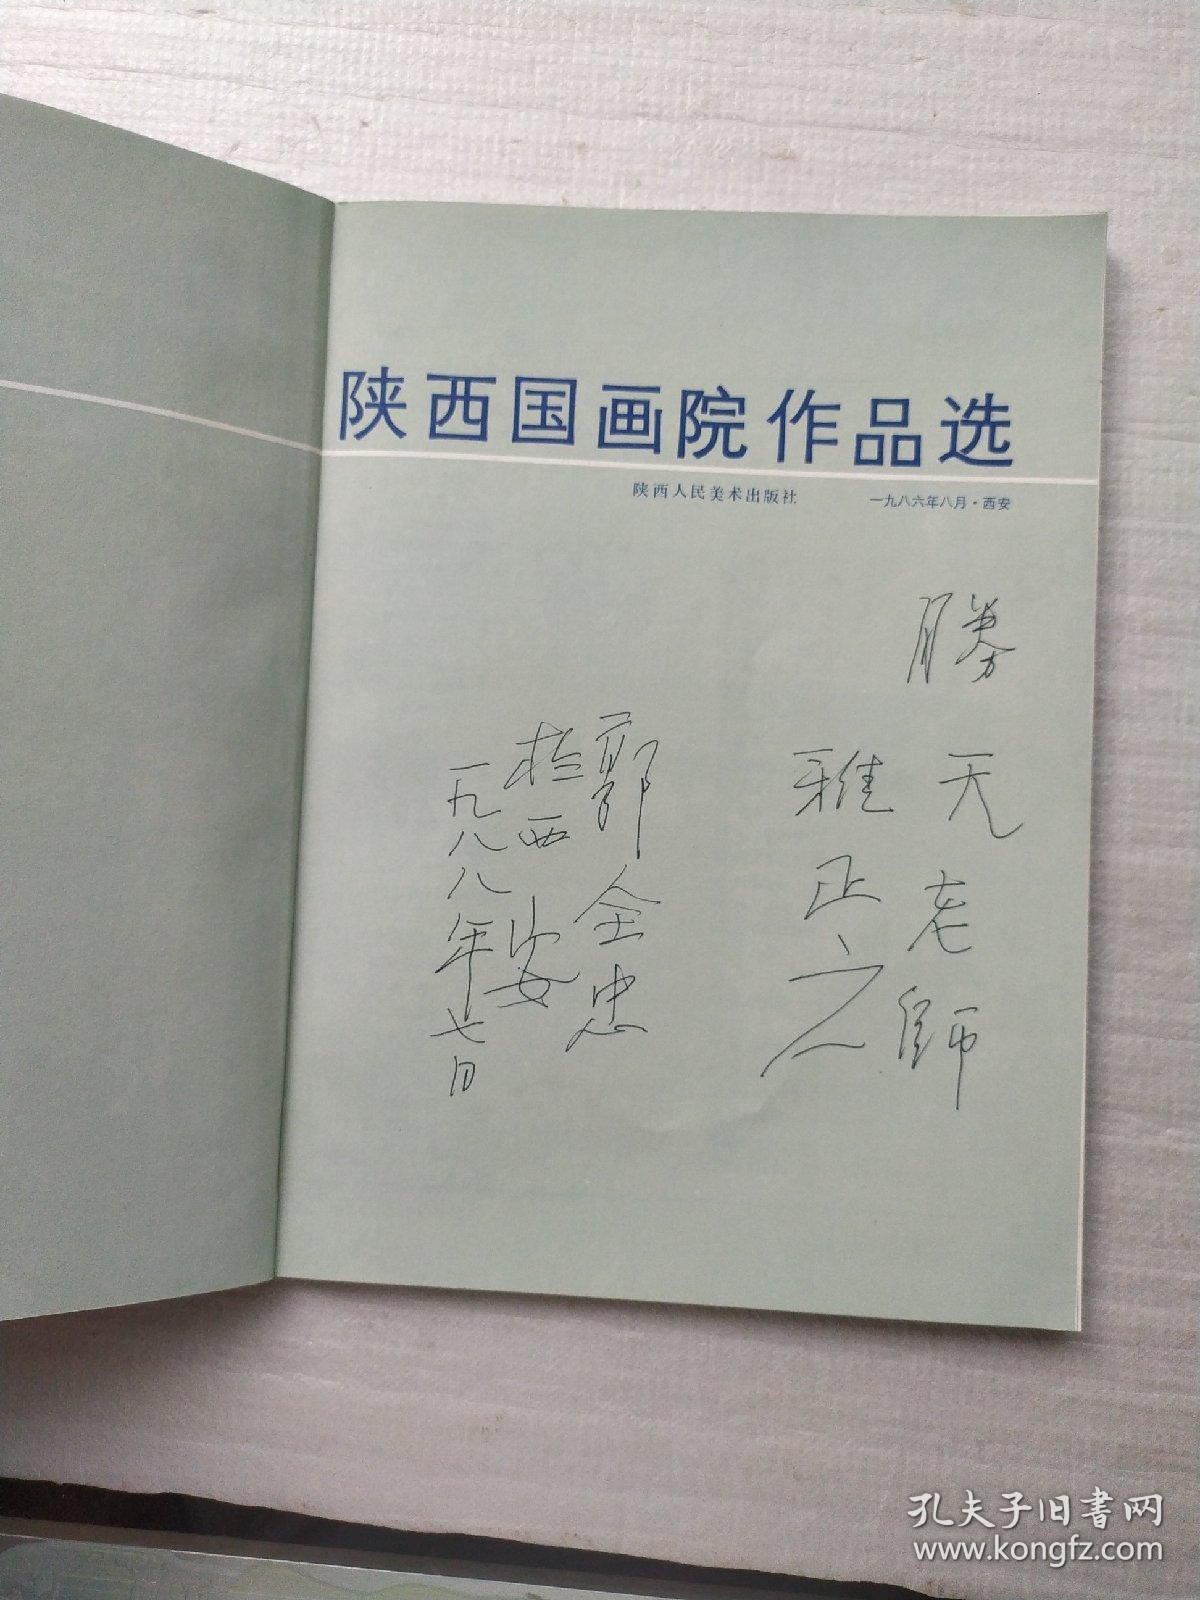 陕西国画院作品选
陕西人民美术出版社
一九八六年八月·西安
勝天老師
雅正之
郭全忠
於西安
一九八八年七日
孔夫子旧書网
www.kongfz.com